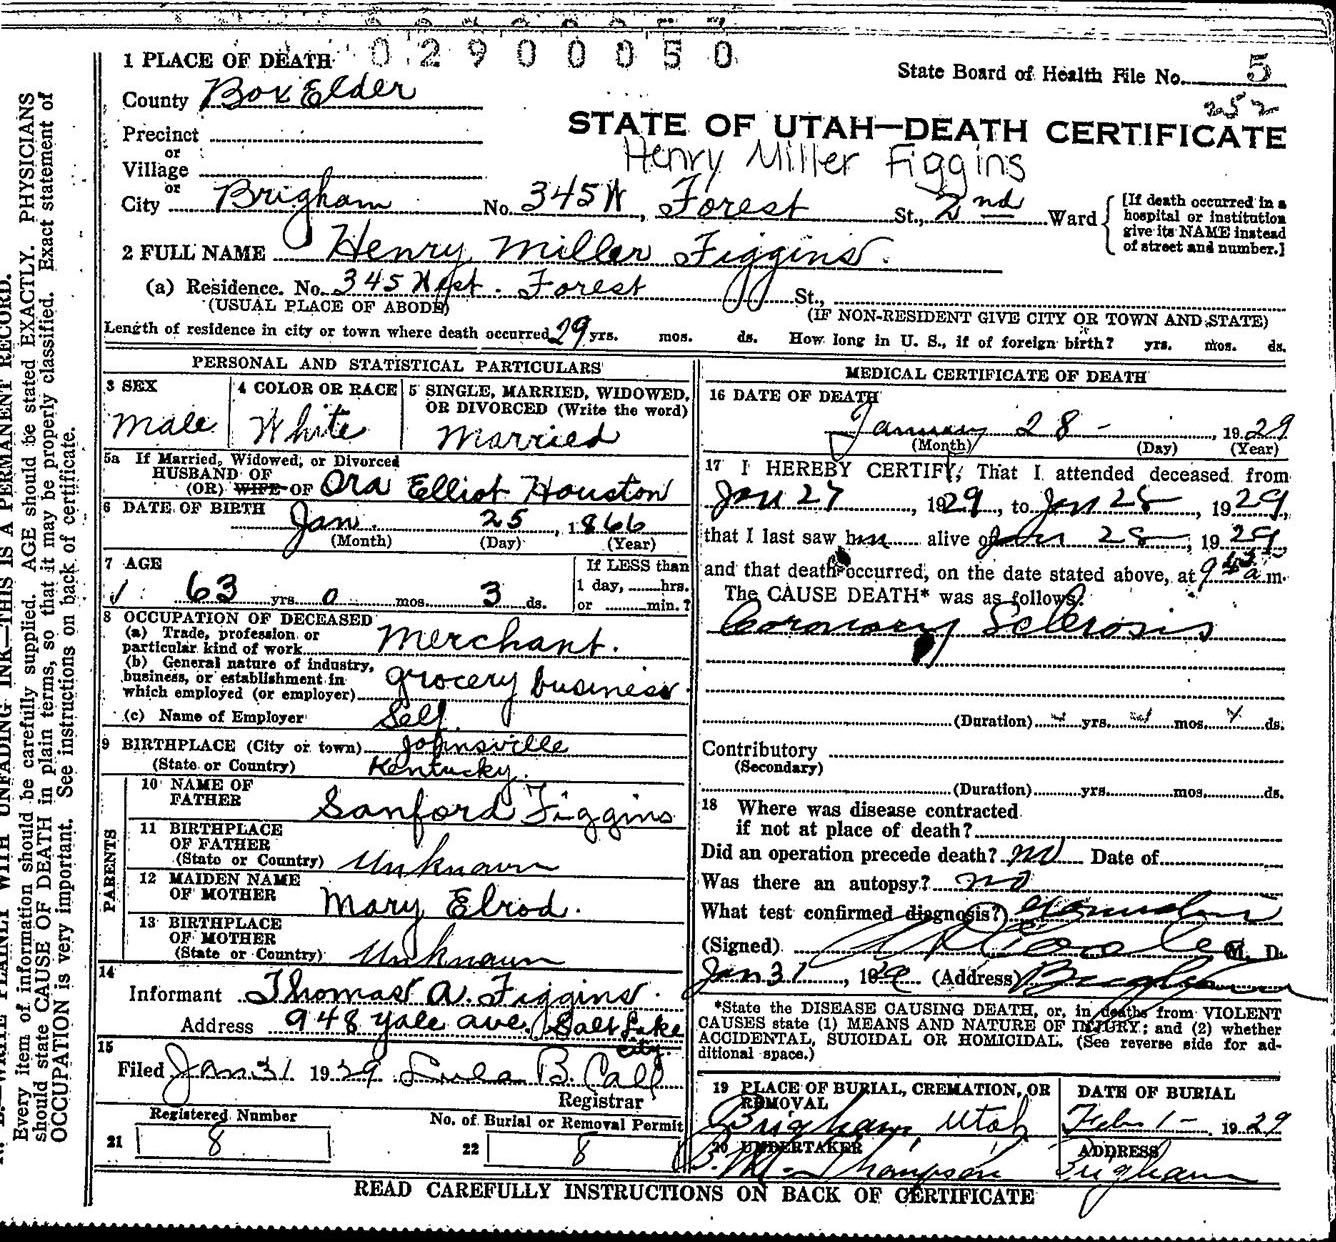 0 2 9 0 0 0 5 0
1 PLACE OF DEATH
State Board of Health File No. 5
County Box Elder
252
STATE OF UTAH—DEATH CERTIFICATE
Precinct
or
Henry Miller Figgins
Village
or
City Brigham No. 345 W, Forest St., 2nd Ward
[If death occurred in a hospital or institution give its NAME instead of street and number.]
2 FULL NAME Henry Miller Figgins.
(a) Residence. No. 345 West. Forest St.,
(USUAL PLACE OF ABODE) (IF NON-RESIDENT GIVE CITY OR TOWN AND STATE)
Length of residence in city or town where death occurred 29 yrs. mos. ds. How long in U. S., if of foreign birth? yrs. mos. ds.
PERSONAL AND STATISTICAL PARTICULARS
3 SEX
Male
4 COLOR OR RACE
White
5 SINGLE, MARRIED, WIDOWED, OR DIVORCED (Write the word)
Married
5a If Married, Widowed, or Divorced
HUSBAND OF
(OR) WIFE OF Ora Elliot Houston
6 DATE OF BIRTH
Jan. 25, 1866
(Month) (Day) (Year)
7 AGE
63 yrs. 0 mos. 3 ds.
If LESS than
1 day, hrs.
or min.?
8 OCCUPATION OF DECEASED
(a) Trade, profession or
particular kind of work Merchant.
(b) General nature of industry,
business, or establishment in
which employed (or employer) grocery business.
(c) Name of Employer Self.
9 BIRTHPLACE (City or town) Johnsville
(State or Country) Kentucky.
PARENTS
10 NAME OF
FATHER Sanford Figgins
11 BIRTHPLACE
OF FATHER
(State or Country) Unknown
12 MAIDEN NAME
OF MOTHER Mary Elrod.
13 BIRTHPLACE
OF MOTHER
(State or Country) Unknown
14
Informant Thomas A. Figgins.
Address 948 Yale Ave. Salt Lake
City.
15
Filed Jan 31 1929 Lula B. Call
Registrar
Registered Number
21 8
No. of Burial or Removal Permit
22 8
MEDICAL CERTIFICATE OF DEATH
16 DATE OF DEATH
January 28 -, 1929
(Month) (Day) (Year)
17 I HEREBY CERTIFY, That I attended deceased from
Jan 27, 1929, to Jan 28, 1929,
that I last saw him alive on Jan 28, 1929
and that death occurred, on the date stated above, at 9 43 a m.
The CAUSE DEATH* was as follows:
Coronary Sclerosis
(Duration) yrs. mos. ds.
Contributory
(Secondary)
(Duration) yrs. mos. ds.
18 Where was disease contracted
if not at place of death?
Did an operation precede death? no Date of
Was there an autopsy? no
What test confirmed diagnosis?
(Signed) M. D.
Jan 31, 1929 (Address) Brigham
*State the DISEASE CAUSING DEATH, or, in deaths from VIOLENT
CAUSES state (1) MEANS AND NATURE OF INJURY; and (2) whether
ACCIDENTAL, SUICIDAL OR HOMICIDAL. (See reverse side for ad-
ditional space.)
19 PLACE OF BURIAL, CREMATION, OR
REMOVAL
Brigham, Utah
DATE OF BURIAL
Feb. 1 - 1929
20 UNDERTAKER
Thompson
ADDRESS
Brigham
READ CAREFULLY INSTRUCTIONS ON BACK OF CERTIFICATE
WRITE PLAINLY WITH UNFADING INK—THIS IS A PERMANENT RECORD.
Every item of information should be carefully supplied. AGE should be stated EXACTLY. PHYSICIANS
should state CAUSE OF DEATH in plain terms, so that it may be properly classified. Exact statement of
OCCUPATION is very important. See instructions on back of certificate.